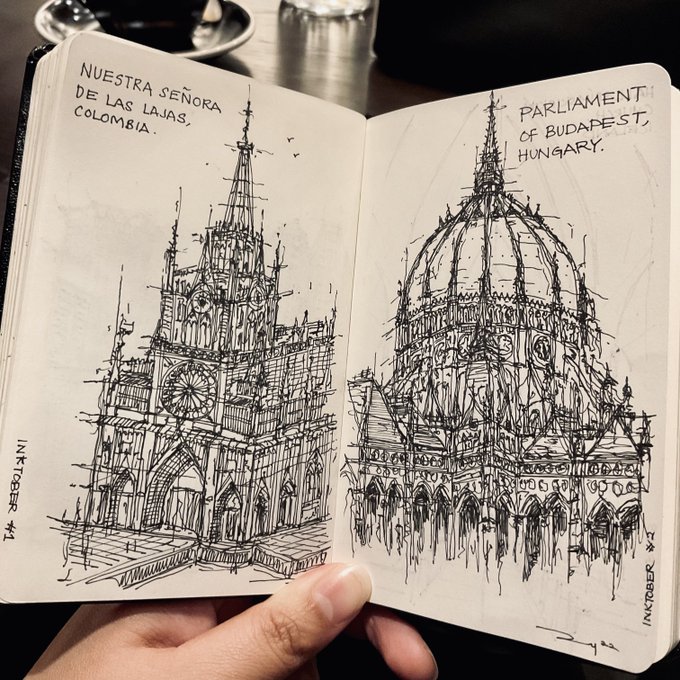 NUESTRA SEÑORA
DE LAS LAJAS,
COLOMBIA.
INKTOBER #1
PARLIAMENT
OF BUDAPEST,
HUNGARY.
INKTOBER #2